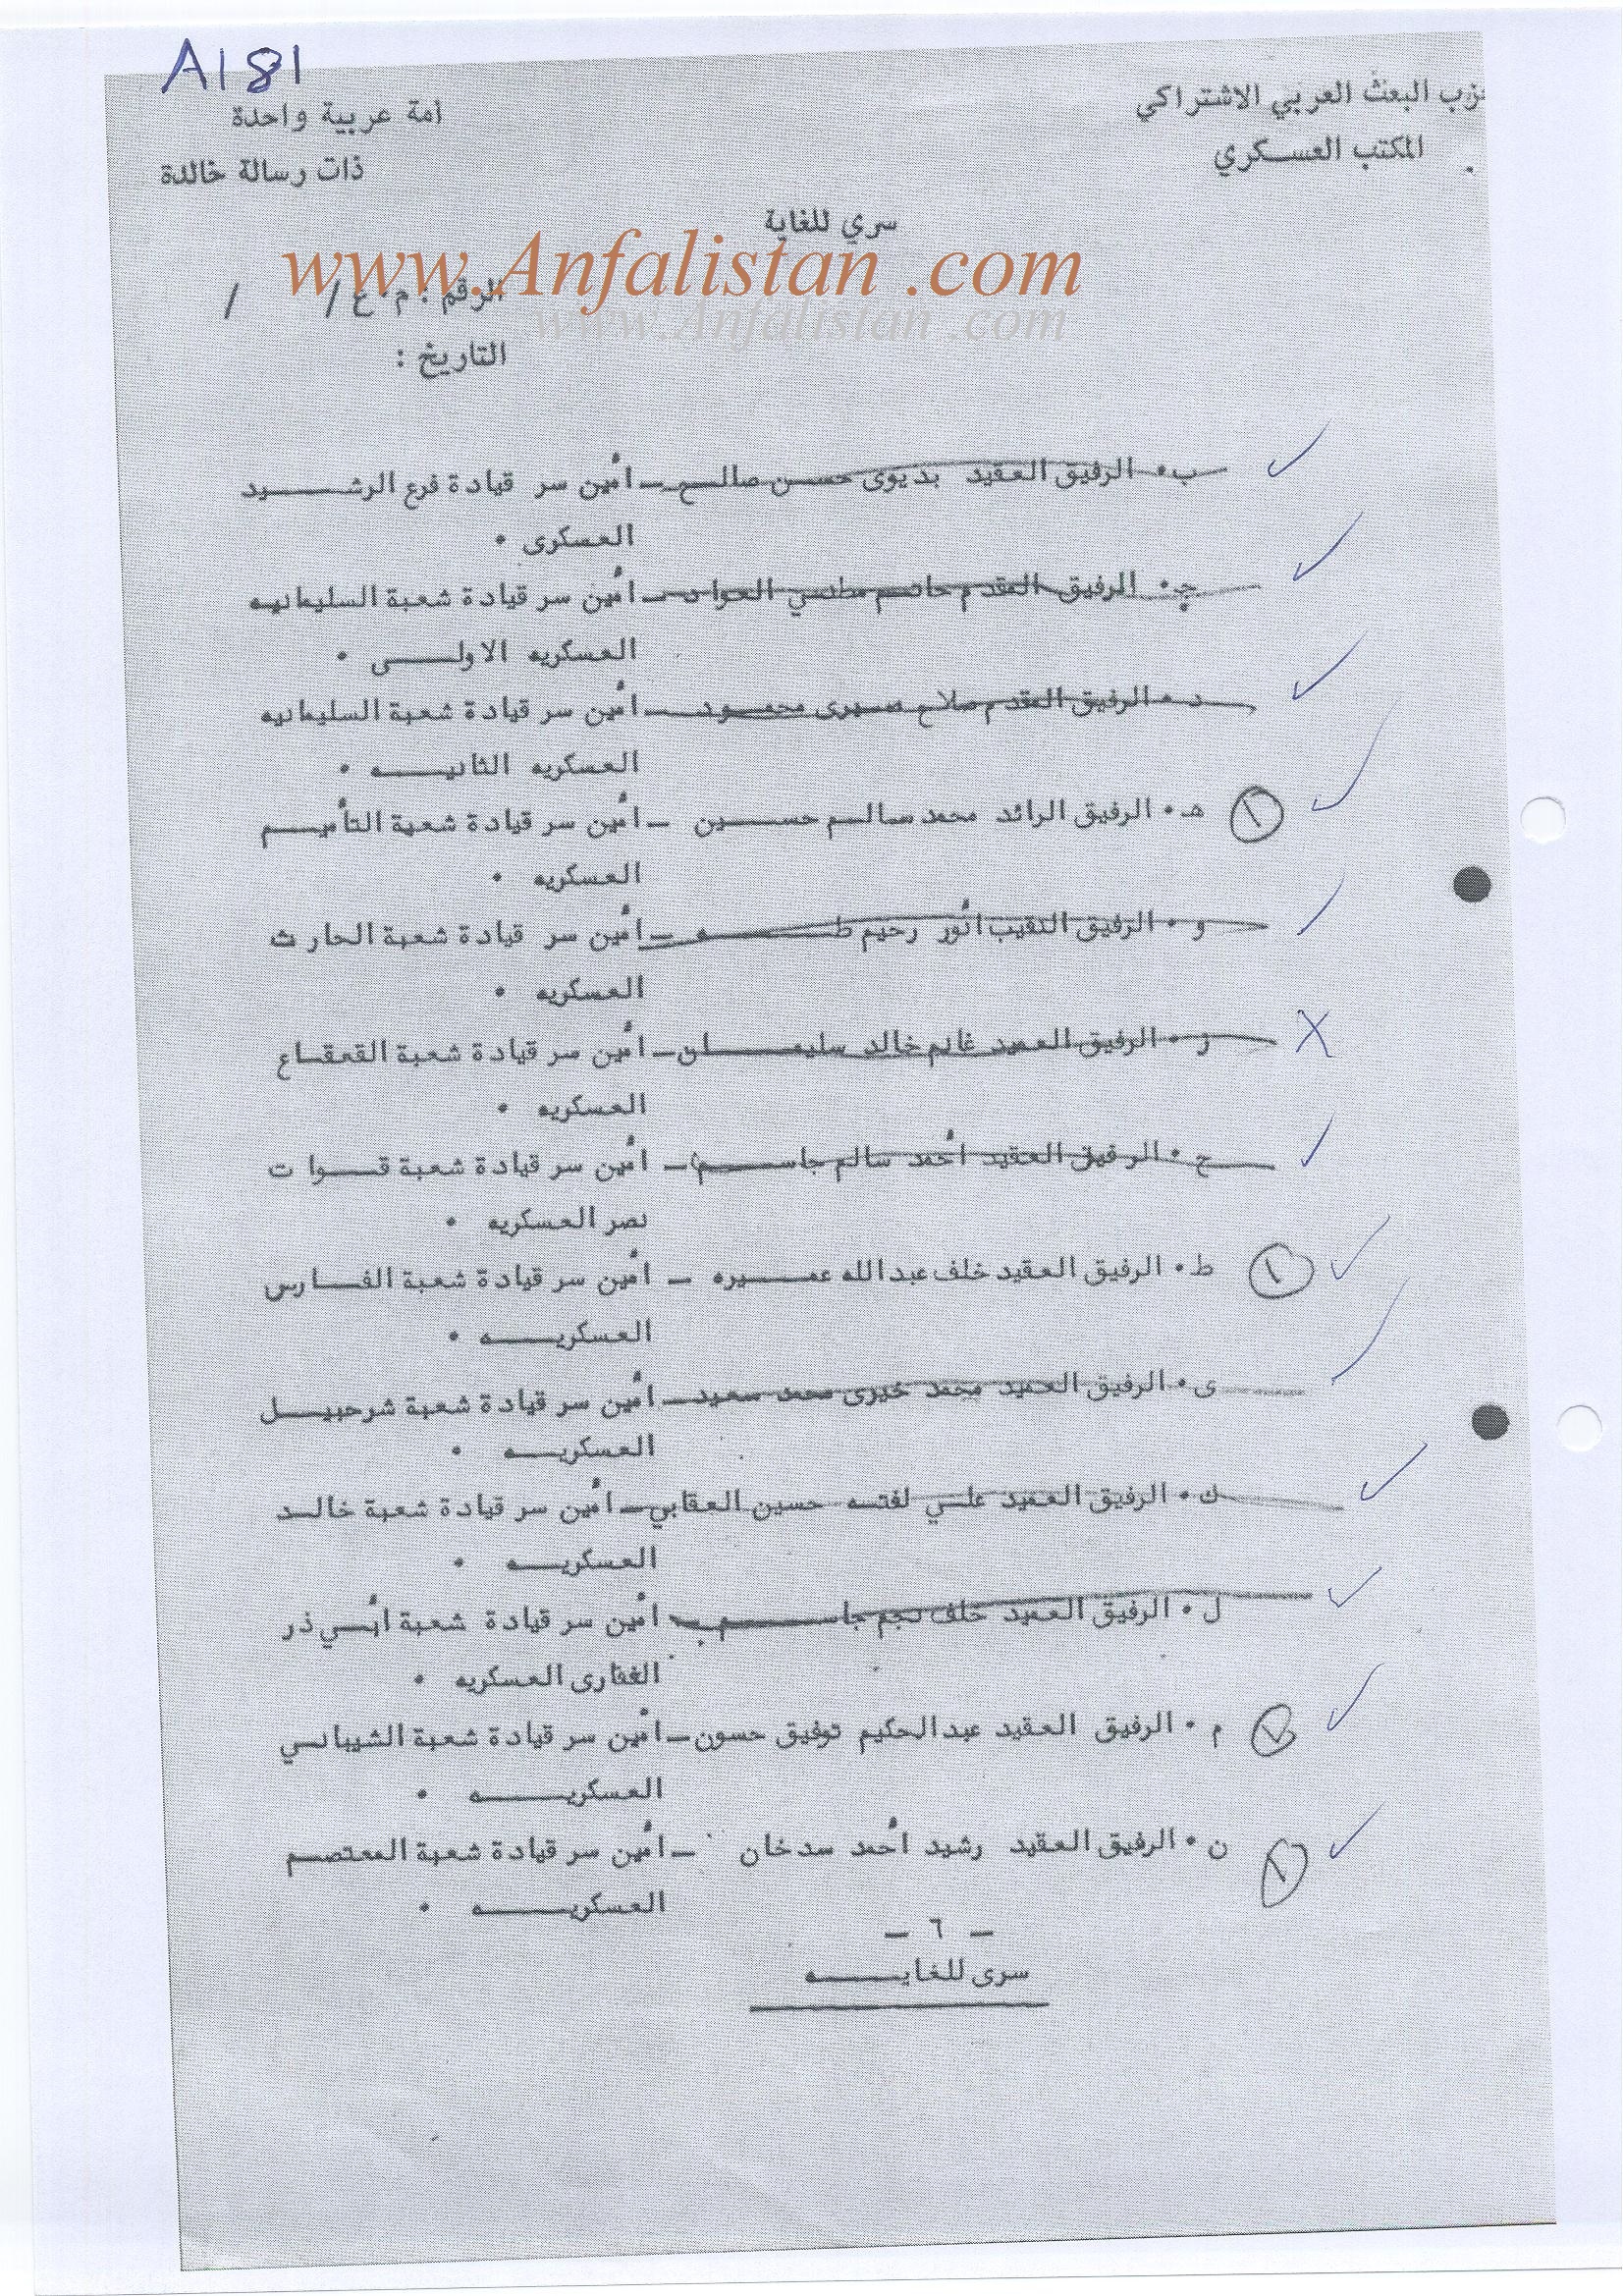 A181
حزب البعث العربي الاشتراكي
المكتب العسكري
أمة عربية واحدة
ذات رسالة خالدة
سري للغاية
www.Anfalistan .com
www.Anfalistan .com
الرقم : م٠ع / /
التاريخ :
ب٠ الرفيق العقيد بديوى حسن صالح ــ أمين سر قيادة فرع الرشيد
العسكرى ٠
ج٠ الرفيق المقدم حاتم مطني العواد ــ أمين سر قيادة شعبة السليمانيه
العسكريه الاولى ٠
د ٠ الرفيق المقدم صلاح صبرى محمود ــ أمين سر قيادة شعبة السليمانيه
العسكريه الثانيه ٠
١ هـ ٠ الرفيق الرائد محمد سالم حسين ــ أمين سر قيادة شعبة التأميم
العسكريه ٠
و ٠ الرفيق النقيب أنور رحيم طه ــ أمين سر قيادة شعبة الحارث
العسكريه ٠
ز ٠ الرفيق العميد غانم خالد سليمان ــ أمين سر قيادة شعبة القعقاع
العسكريه ٠
ح ٠ الرفيق العقيد أحمد سالم جاسم ــ أمين سر قيادة شعبة قوات
نصر العسكريه ٠
١ ط ٠ الرفيق العقيد خلف عبدالله عميره ــ أمين سر قيادة شعبة الفارس
العسكريه ٠
ى ٠ الرفيق العميد محمد خيرى محمد سعيد ــ أمين سر قيادة شعبة شرحبيل
العسكريه ٠
ك ٠ الرفيق العميد علي لفته حسين العقابي ــ أمين سر قيادة شعبة خالد
العسكريه ٠
ل ٠ الرفيق العميد خلف نجم جاسم ــ أمين سر قيادة شعبة أبي ذر
الغفارى العسكريه ٠
م ٠ الرفيق العقيد عبدالحكيم توفيق حسون ــ أمين سر قيادة شعبة الشيباني
العسكريه ٠
١ ن ٠ الرفيق العقيد رشيد أحمد سدخان ــ أمين سر قيادة شعبة المعتصم
العسكريه ٠
ــ ٦ ــ
سرى للغايه